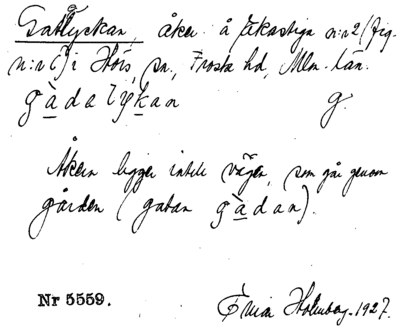 Gatlyckan, åker å Äkastiga n:r 2 (fig.
n:r 6) i Hörs sn., Frosta hd, Mlm. län.
gàdalykan g.
Åkern ligger intill vägen, som går genom
gården (gatan gàdan).
Nr 5559. Erik Holmberg 1927.